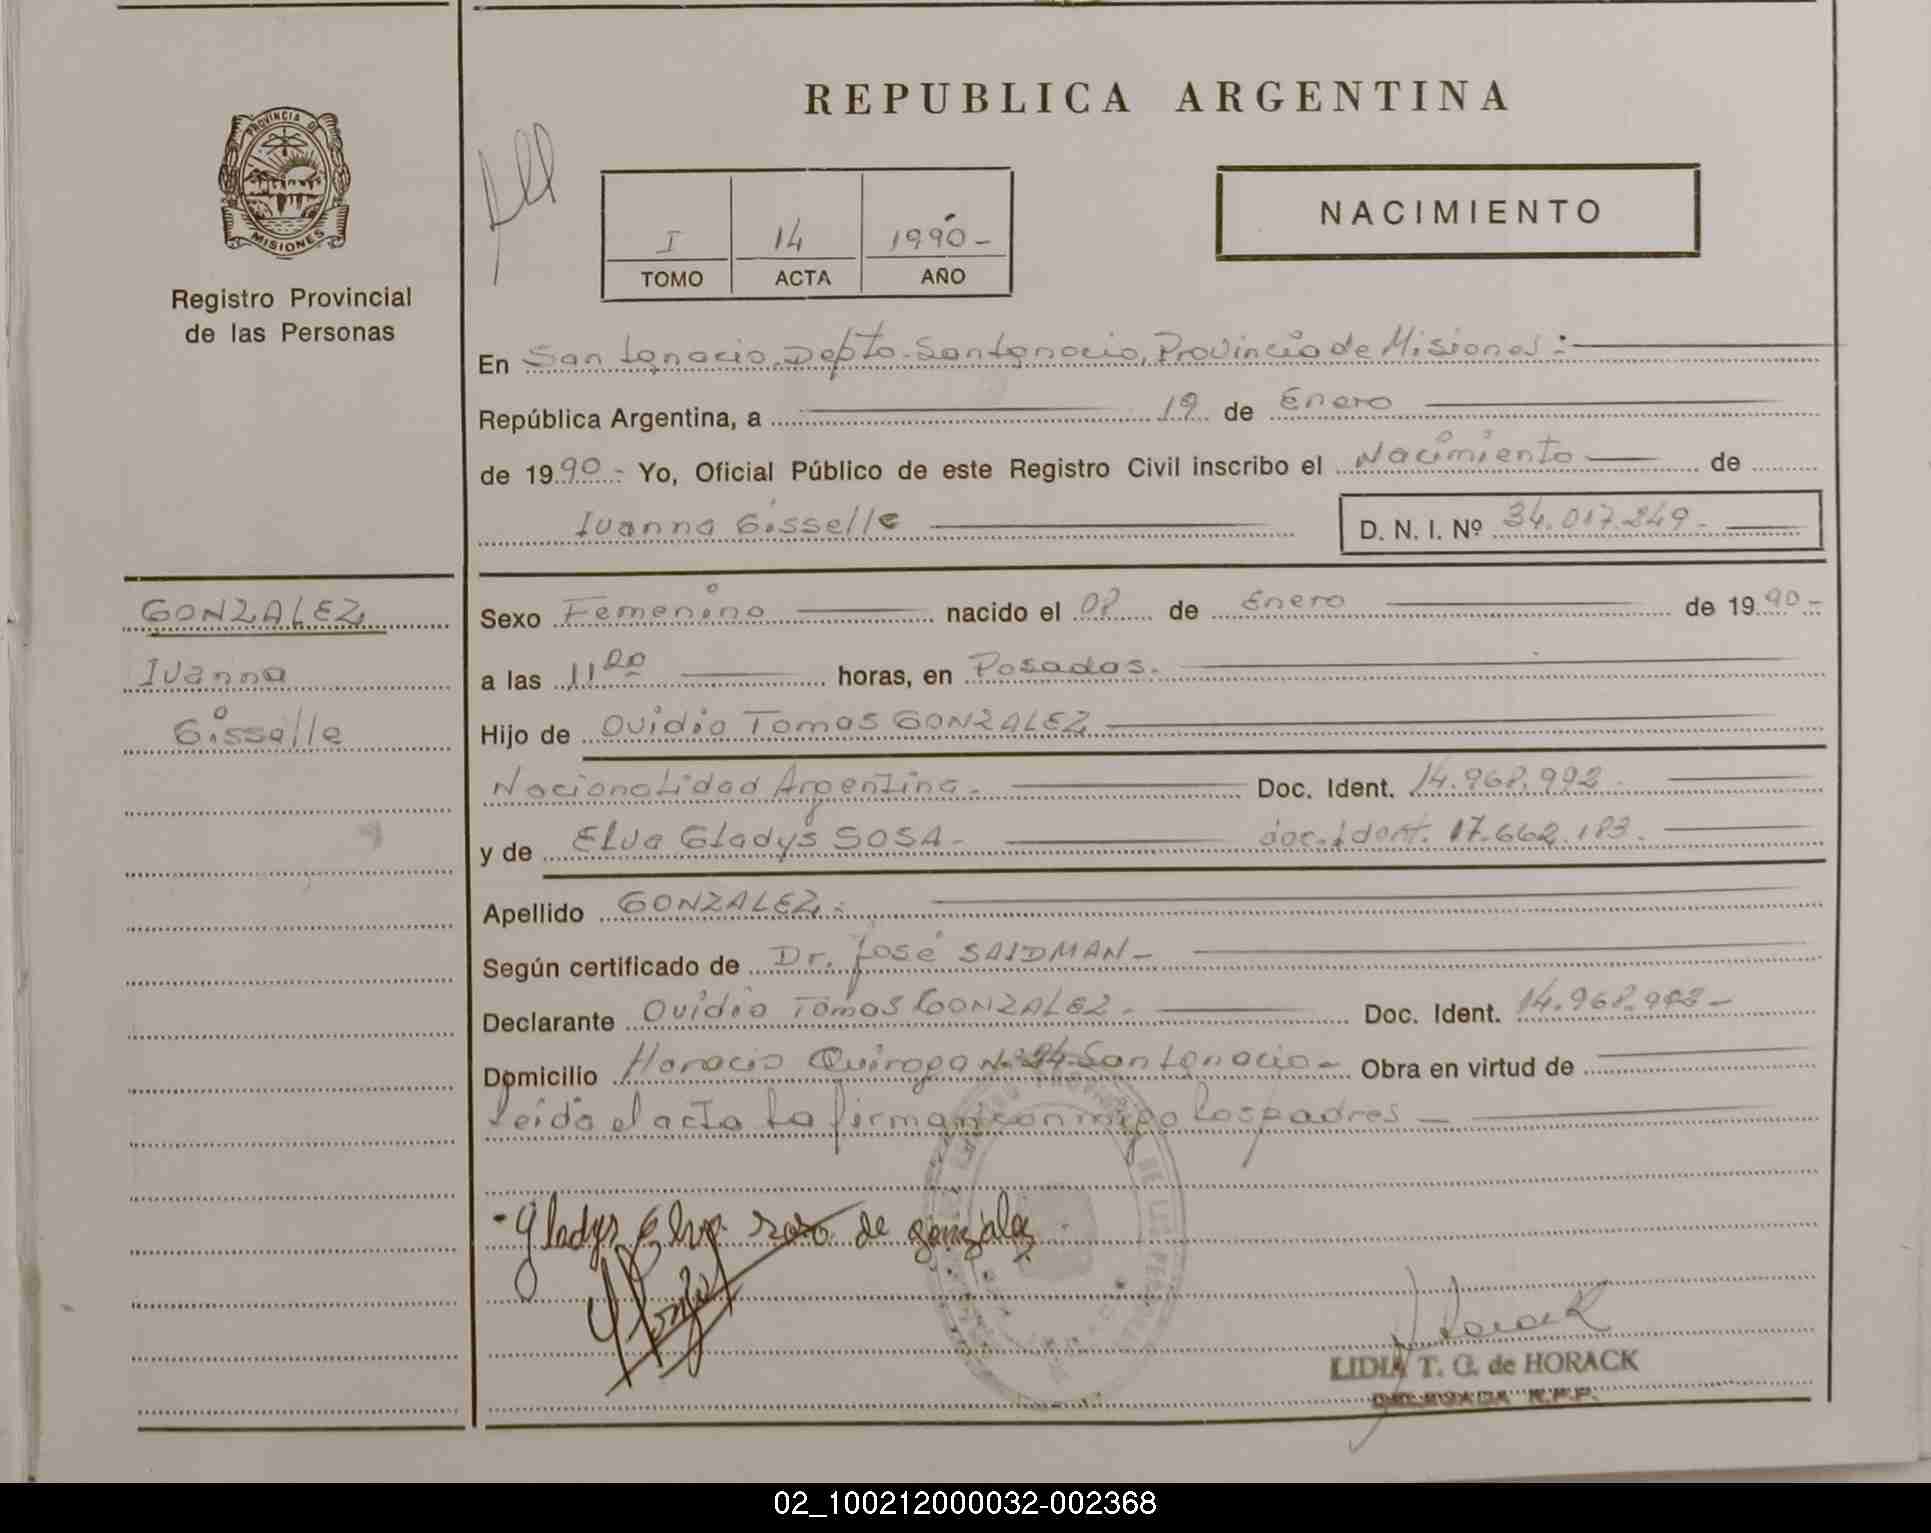 REPUBLICA ARGENTINA
PROVINCIA DE
MISIONES
Registro Provincial
de las Personas
I 14 1990-
TOMO ACTA AÑO
NACIMIENTO
En San Ignacio, Depto. San Ignacio, Provincia de Misiones:
República Argentina, a 19 de Enero
de 1990.- Yo, Oficial Público de este Registro Civil inscribo el Nacimiento de
Ivanna Gisselle
D. N. I. Nº 34.017.249.-
GONZALEZ
Ivanna
Gisselle
Sexo Femenino nacido el 08 de Enero de 1990.-
a las 11 00 horas, en Posadas.
Hijo de Ovidio Tomas GONZALEZ
Nacionalidad Argentina. Doc. Ident. 14.968.992.
y de Elva Gladys SOSA.- doc. Ident. 17.662.183.
Apellido GONZALEZ.-
Según certificado de Dr. José SAIDMAN-
Declarante Ovidio Tomas GONZALEZ.- Doc. Ident. 14.968.992-
Domicilio Horacio Quiroga Nº 24 San Ignacio- Obra en virtud de
leída el acta la firman conmigo los padres-
Gladys Elva Soso de gonzalez
LIDIA T. G. de HORACK
DELEGADA R.P.P.
02_100212000032-002368